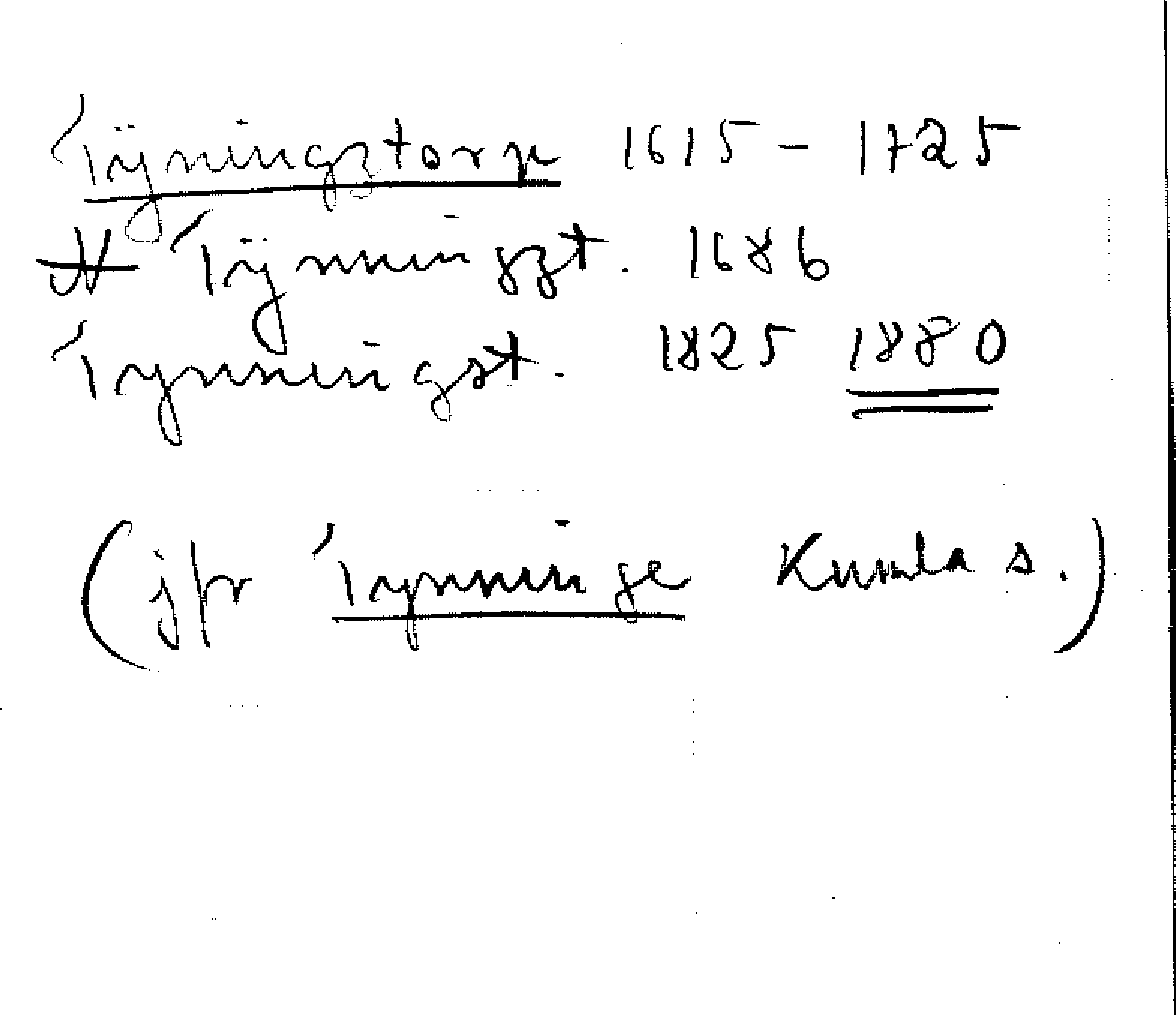 Tÿningztorp 1615 - 1725
N Tÿnningzt. 1686
Tynningst. 1825 1880
(jfr Tynninge Kumla s.)